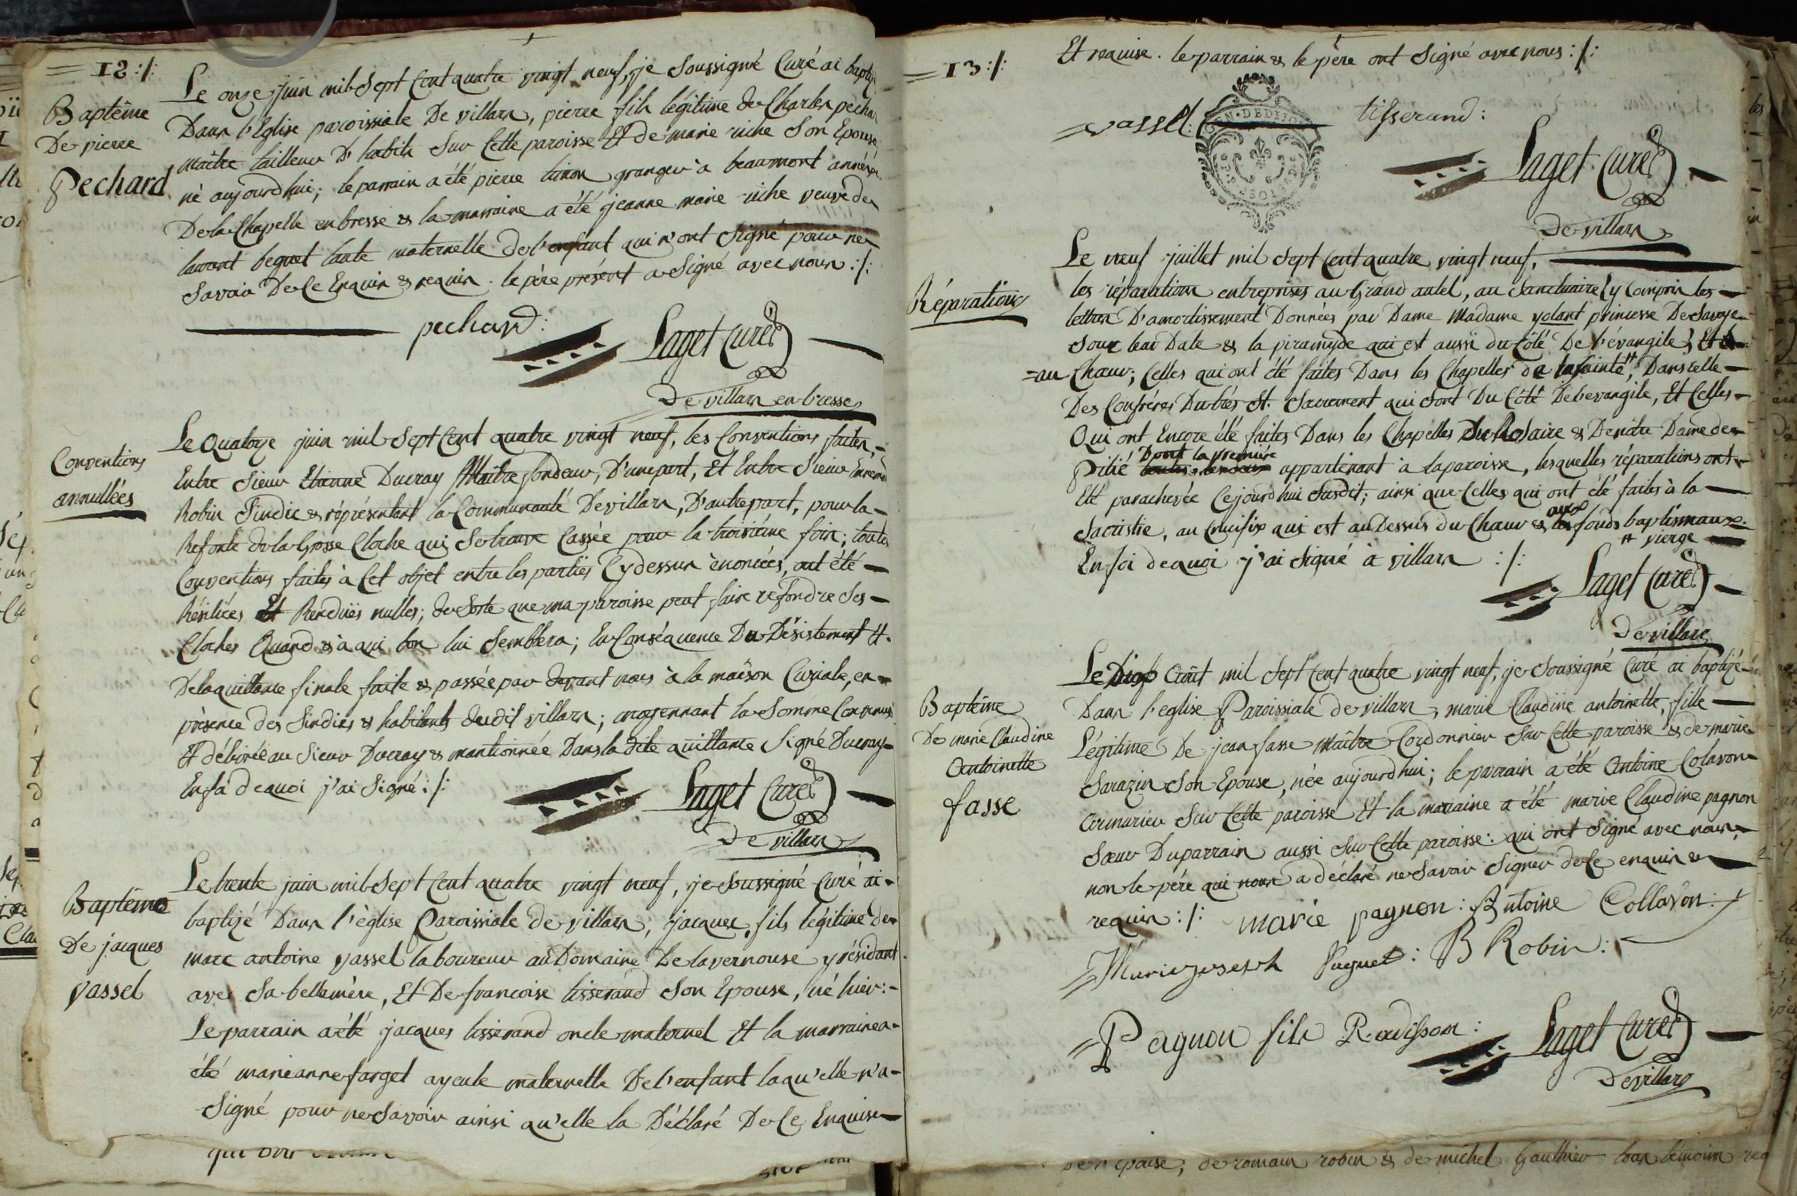 12:/:
Baptême
De pierre
Pechard
Le onze juin mil Sept Cent quatre vingt neuf, je Soussigné Curé ai baptizé
Dans l'Eglise paroissiale De villars, pierre fils légitime de Charles pechard
maître tailleur D'habits Sur Cette paroisse Et de marie riche Son Epouse
né aujourd'hui; le parrain a été pierre granger à beaumont annexe
De la Chapelle en bresse & la marraine a été jeanne marie riche veuve de
laurent beguet tante maternelle de l'enfant qui n'ont Signé pour ne
Savoir De Ce Enquis & requis. le père présent a Signé avec nous:/:
pechard:
Laget Curé
De villars en bresse
Conventions
annullées
Le quatorze juin mil Sept Cent quatre vingt neuf, les Conventions faites,
Entre Sieur Etienne Ducray Maître fondeur, D'une part, Et Entre Sieur
Robin Sindic & réprésentant la Communauté De villars, D'autre part, pour la
Refonte de la Grosse Cloche qui Se trouve Cassée pour la troisieme fois; toutes
Conventions faites à Cet objet entre les parties Cy dessus énoncées, ont été
Résiliées Et Renduës nulles; de Sorte que ma paroisse peut faire refondre Ses
Cloches Quand & à qui bon lui Semblera; En Conséquence Du Désistement &
De la quittance finale faite & passée par devant nous à la maison Curiale, en
présence des Sindics & habitants dudit villars; moyennant la Somme Convenuë
Et déboursé au Sieur Ducray & mantionnée Dans la dite quittance Signé Ducray
En foi de quoi j'ai Signé:/:
Laget Curé
De villars
Baptême
De jacques
vassel
Le trente juin mil Sept Cent quatre vingt neuf, je Soussigné Curé ai
baptizé Dans l'église Paroissiale de villars, jacques, fils légitime de
marc antoine vassel laboureur au Domaine De la vernouse y résidant
avec Sa belle mère, Et De francoise tisserand Son Epouse, né hier:
Le parrain a été jacques tisserand oncle maternel Et la marraine a
été marianne farget ayeule maternelle De l'enfant laqu'elle n'a
Signé pour ne Savoir ainsi qu'elle la Déclaré De Ce Enquise
13:/:
Et requise. le parrain & le père ont Signé avec nous:/:
vassel:
tisserand:
Laget Curé
De villars
Réparations
Le neuf juillet mil Sept Cent quatre vingt neuf,
les réparations entreprises au Grand autel, au Sanctuaire (y Compris les
lettres D'amortissement Données par Dame Madame yolant princesse De Savoye
Sous leur Date & la piramyde qui est aussi du Côté De l'évangile) Et
au Chœur; Celles qui ont été faites Dans les Chapelles de la Sainte #, Dans celle
Des Confréres Du très St. Sacrement qui Sont Du Côté De l'evangile, Et Celles
Qui ont Encore été faites Dans les Chapelles Du Rosaire & De nôtre Dame de
Dont la premiere
Pitié appartenant à la paroisse, lesquelles réparations ont
Eté parachevée Cejourd'hui Susdit; ainsi que Celles qui ont été faites à la
Sacristie, au Crucifix qui est au Dessus du Chœur & aux fonds baptismaux.
# vierge
En foi de quoi j'ai Signé à villars :/:
Laget Curé
De villars
Baptême
De marie Claudine
Antoinette
fasse
Le Dix août mil Sept Cent quatre vingt neuf, je Soussigné Curé ai baptizé
Dans l'eglise Paroissiale de villars, marie Claudine antoinette, fille
Légitime De jean fasse Maître Cordonnier Sur Cette paroisse & de marie
Sarazin Son Epouse, née aujourd'hui; le parrain a été Antoine Colavon
Sur Cette paroisse Et la maraine a été marie Claudine pagnon
Sœur Du parrain aussi Sur Cette paroisse: qui ont Signé avec nous,
non le père qui nous a déclaré ne Savoir Signer de Ce enquis &
requis:/: marie pagnon: Antoine Collavon:
Mariejoseph Puguet: B Robin:
Pagnon fils Radisson:
Laget Curé
De villars
de romain robin & de michel Gauthier